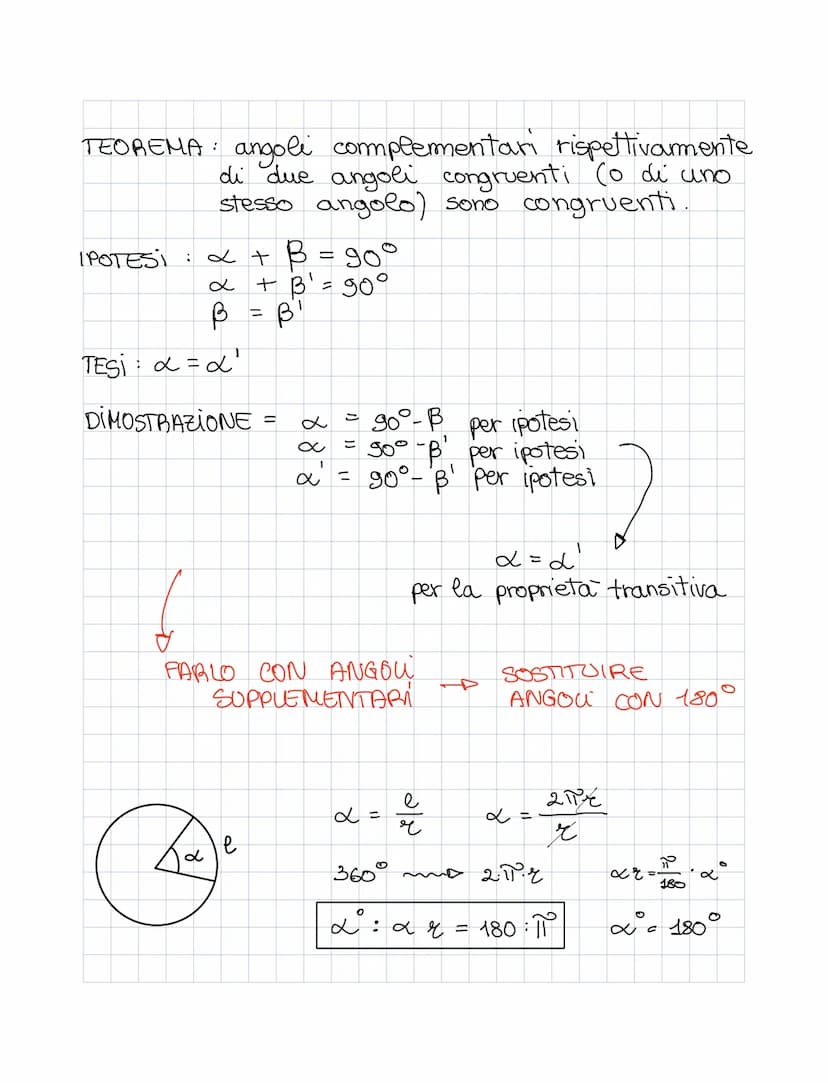 TEOREMA : angoli complementari rispettivamente
di due angoli congruenti (o di uno
stesso angolo) sono congruenti.
IPOTESI : α + β = 90°
α + β' = 90°
β = β'
TESI : α = α'
DIMOSTRAZIONE = α = 90° - β per ipotesi
α = 90° - β' per ipotesi
α' = 90° - β' per ipotesi
α = α'
per la proprietà transitiva
FARLO CON ANGOLI → SOSTITUIRE
SUPPLEMENTARI ANGOLI CON 180°
α = l/r α = 2πr/r
α l
360° → 2·π·r αr = π/180 · α°
α° : αr = 180 : π α° = 180°